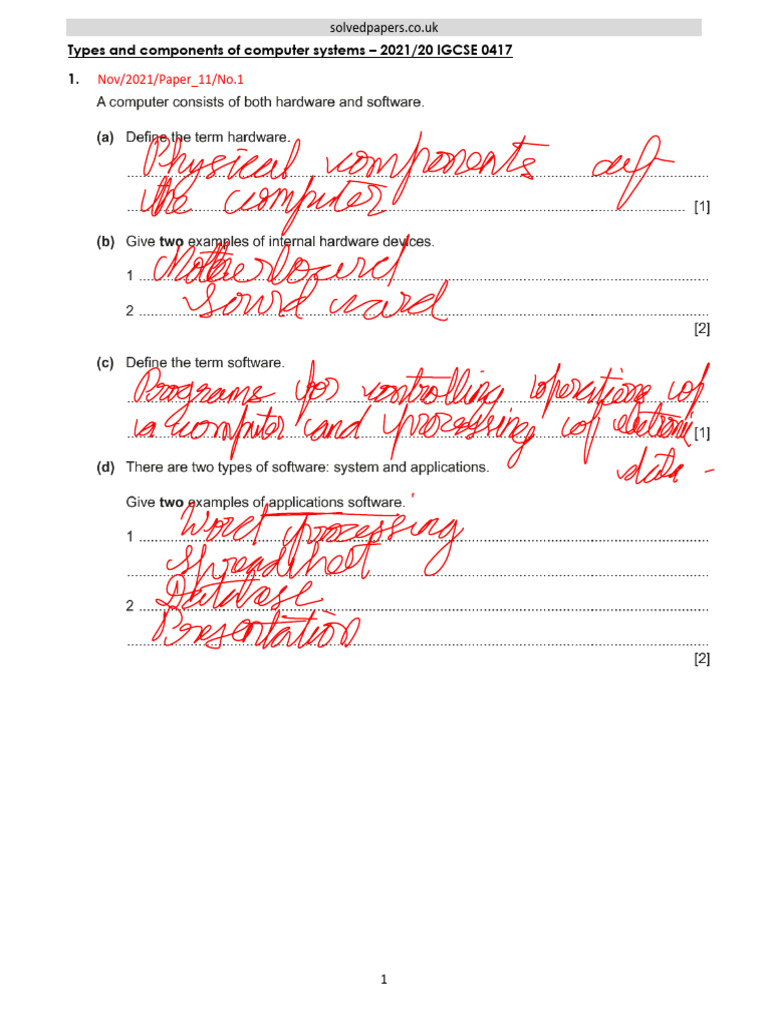 solvedpapers.co.uk
Types and components of computer systems – 2021/20 IGCSE 0417
1. Nov/2021/Paper_11/No.1
A computer consists of both hardware and software.
(a) Define the term hardware.
Physical components of
the computer
[1]
(b) Give two examples of internal hardware devices.
1 Motherboard
2 Sound card
[2]
(c) Define the term software.
Programs for controlling operations of
a computer and processing of electronic [1]
data
(d) There are two types of software: system and applications.
Give two examples of applications software.
1 Word processing
Spreadsheet
2 Database
Presentation
[2]
1